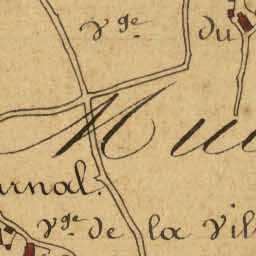 Vge du
Mu
urnal.
Vge de la Vil